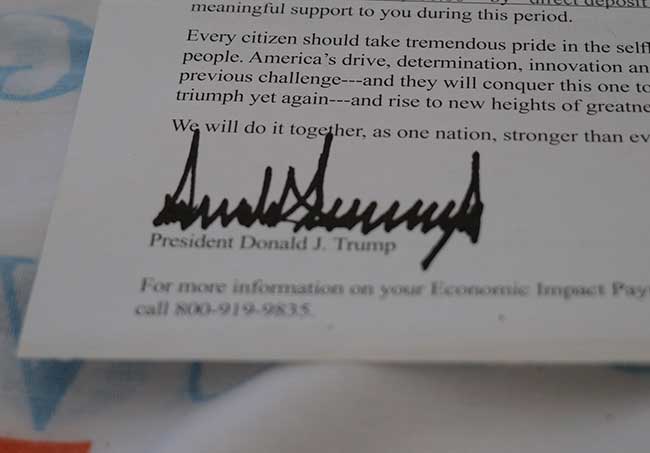 meaningful support to you during this period.
by direct deposit
Every citizen should take tremendous pride in the self
people. America's drive, determination, innovation an
previous challenge---and they will conquer this one to
triumph yet again---and rise to new heights of greatne
We will do it together, as one nation, stronger than ev
President Donald J. Trump
For more information on your Economic Impact Pay
call 800-919-9835.